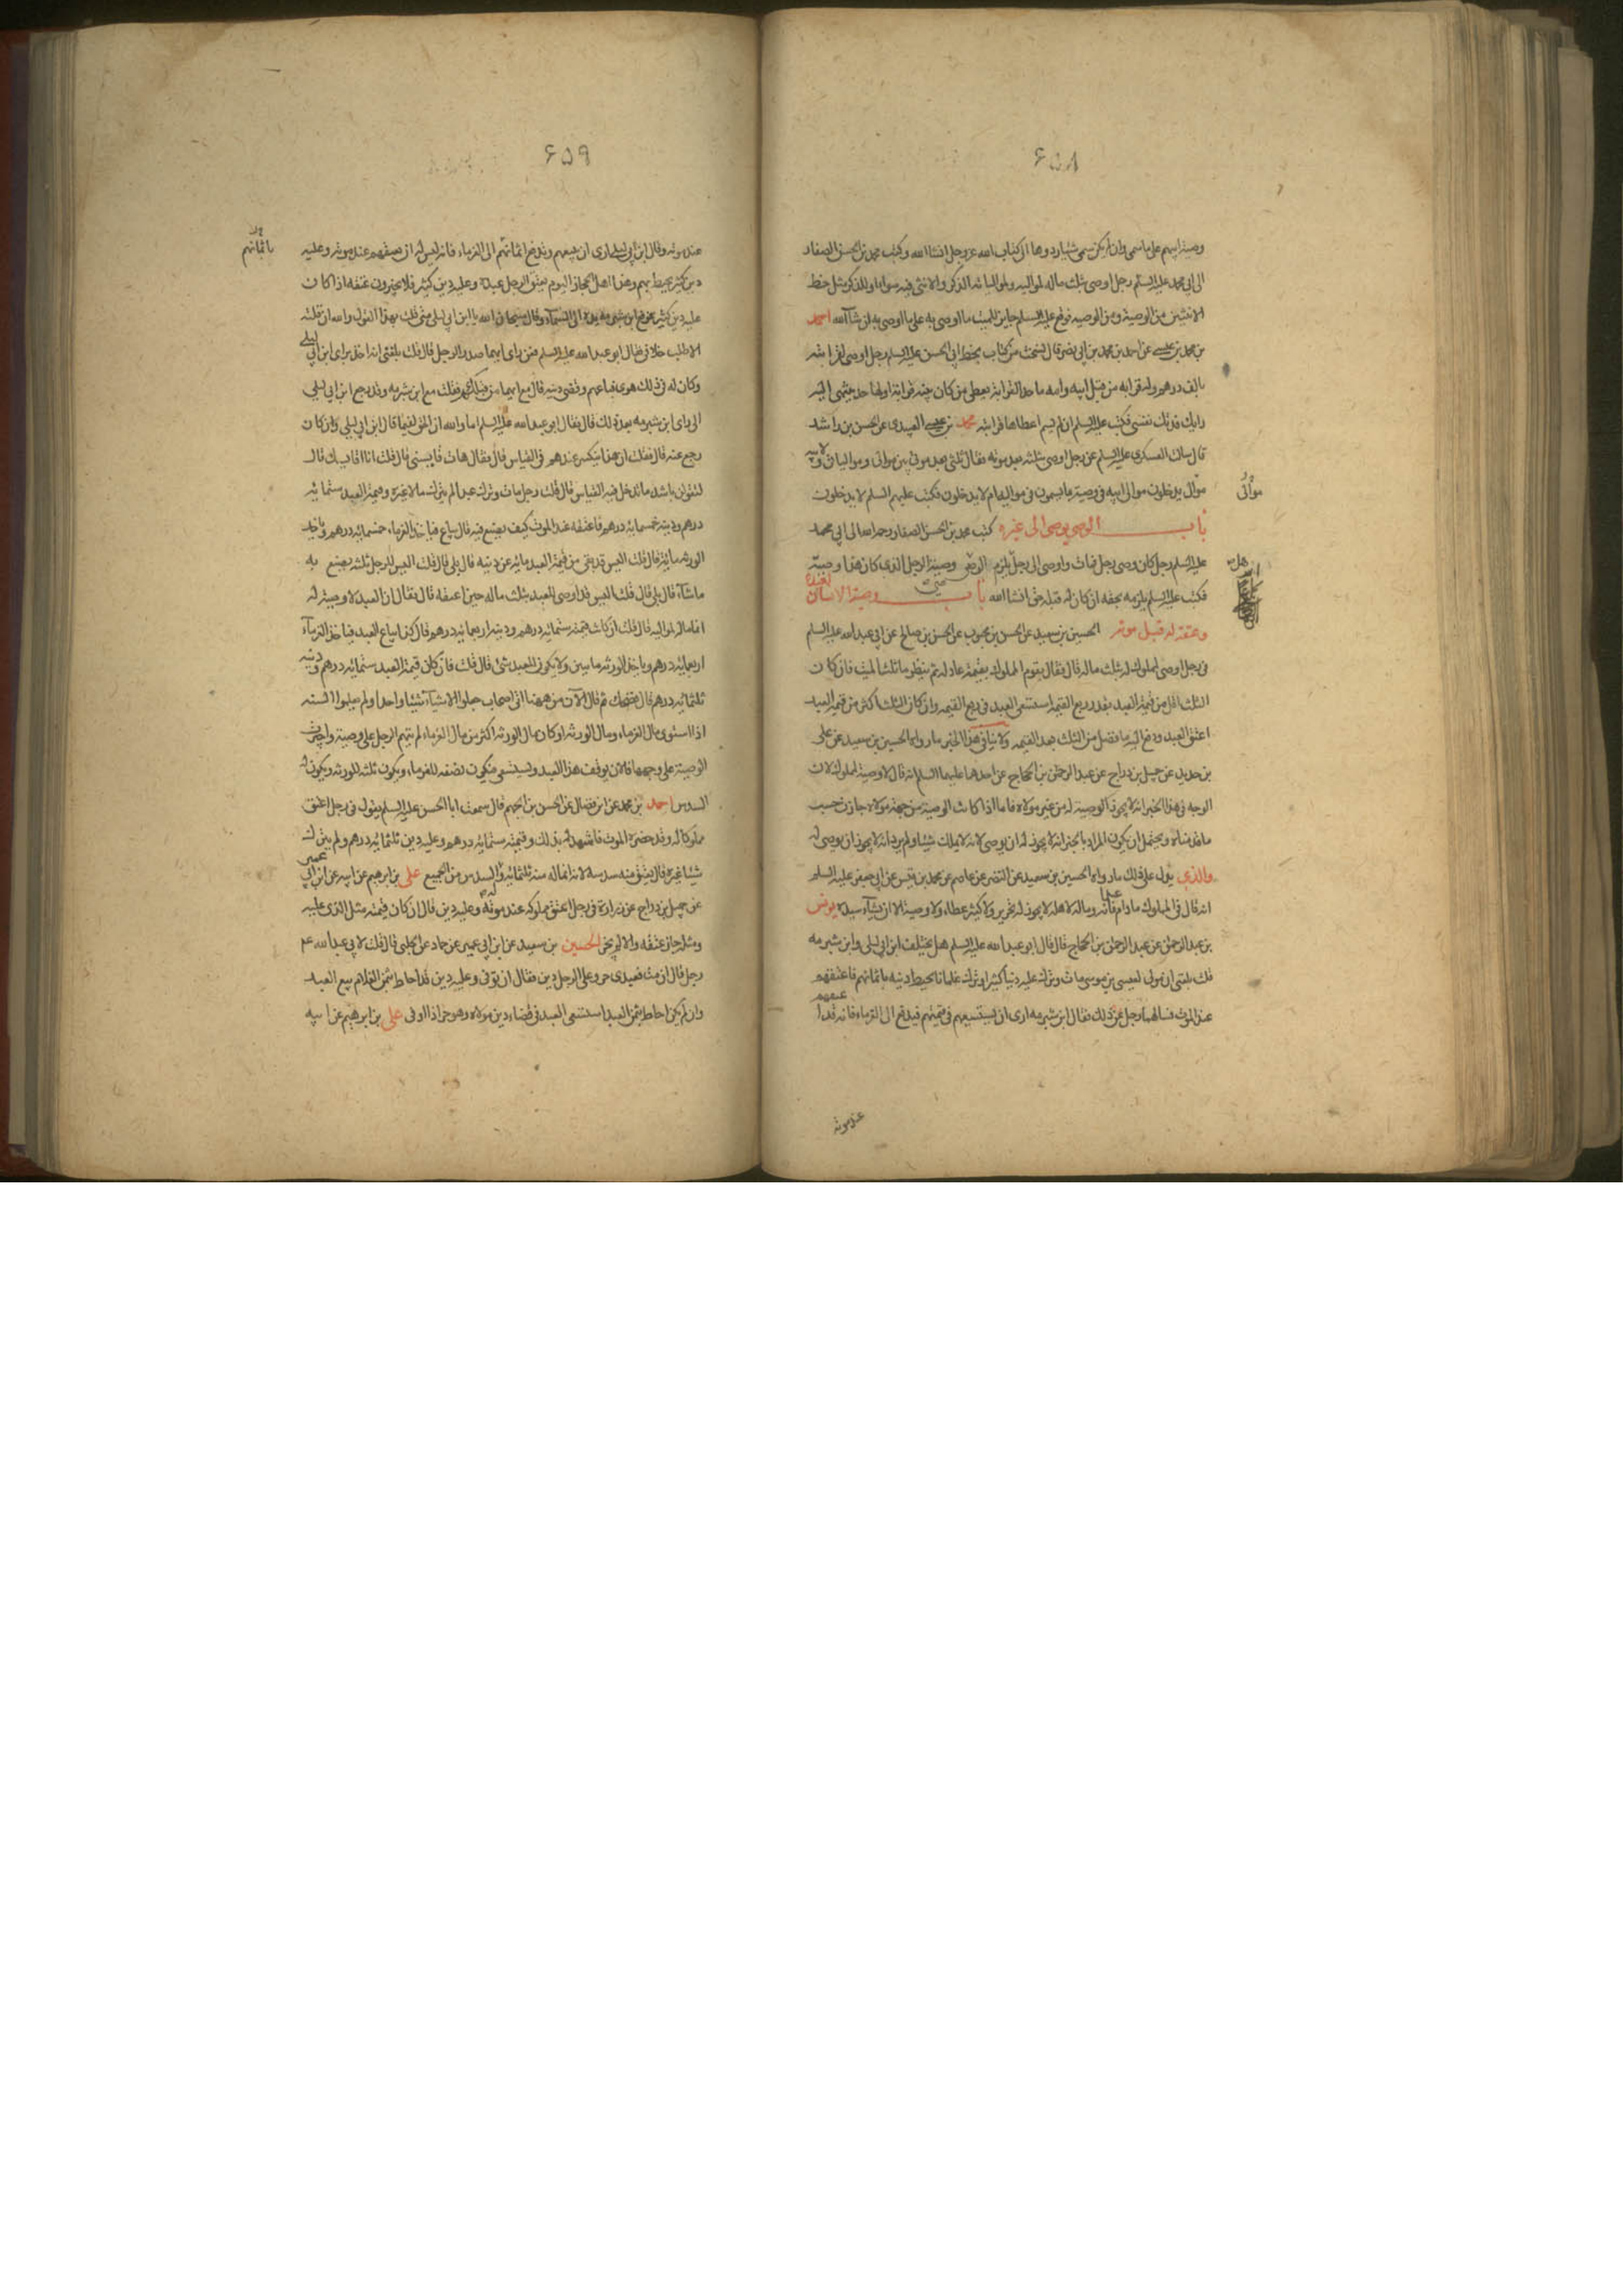 ۶۵۸
وصيته اليهم على ما سمى وان لم يكن سمى شيئا ردوها الى كتاب الله عز وجل انشا الله وكتب محمد بن الحسن الصفار
الى ابى محمد عليه السلم رجل اوصى بثلث ماله لمواليه ولموالياته الذكر والانثى فيه سواء او للذكر مثل حظ
الانثيين من الوصية فوقع عليه السلم جايز للميت ما اوصى به على ما اوصى به ان شآ الله احمد
بن محمد بن عيسى عن احمد بن محمد بن ابى نصر قال نسخت من كتاب بخط ابى الحسن عليه السلم رجل اوصى لقرابته
بالف درهم وله قرابة من قبل ابيه وامه ما حد القرابة يعطى من كان بينه قرابة او لها حد ينتهى اليه
رايك فدتك نفسى فكتب عليه السلم ان لم يسم اعطاها قرابته محمد بن عيسى العبيدى عن الحسن بن راشد
قال سالت العسكرى عليه السلم عن رجل اوصى بثلثه بعد موته فقال ثلثى بعد موتى بين موالى وموالياتى ولابيه
موال يدخلون موالى ابيه فى وصيته بما يسمون فى مواليه ام لا يدخلون فكتب عليهم السلم لا يدخلون
موالى
باب الوصى يوصى الى غيره كتب محمد بن الحسن الصفار رحمه الله الى ابى محمد
عليه السلم رجل كان وصى رجل فمات واوصى الى رجل يلزم الوصى وصية الرجل الذى كان هذا وصيه
هل
فكتب عليه السلم يلزمه بحقه ان كان له قبله حق انشا الله باب وصية الانسان لعبده
وعتقه له قبل موته الحسين بن سعيد عن الحسن بن محبوب عن الحسن بن صالح عن ابى عبد الله عليه السلم
فى رجل اوصى لمملوك له بثلث ماله قال فقال يقوم المملوك بقيمة عادلة ثم ينظر ما ثلث الميت فان كان
الثلث اقل من قيمة العبد بقدر ربع القيمة استسعى العبد فى ربع القيمه وان كان الثلث اكثر من قيمة العبد
اعتق العبد ودفع اليه ما فضل من الثلث بعد القيمه ولا ينافى هذا الخبر ما رواه الحسين بن سعيد عن على
بن حديد عن جميل بن دراج عن عبد الرحمن بن الحجاج عن احدهما عليهما السلم انه قال لا وصية لمملوك لان
الوجه فى هذا الخبر انه لا يجوز الوصية له من غير مولاه فاما اذا كانت الوصية من جهة مولاه جازت حسب
ما قدمناه ويحتمل ان يكون المراد بالخبر انه لا يجوز له ان يوصى لانه لا يملك شيئا ولم يرد انه لا يجوز ان يوصى له
والذى يدل على ذلك ما رواه الحسين بن سعيد عن النضر عن عاصم عن محمد بن قيس عن ابى جعفر عليه السلم
انه قال فى المملوك ما دام عبدا فانه وماله لاهله لا يجوز له تحرير ولا كثير عطاء ولا وصية الا ان يشآء سيده يونس
بن عبد الرحمن عن عبد الرحمن بن الحجاج قال قال ابو عبد الله عليه السلم هل يختلف ابن ابى ليلى وابن شبرمه
قلت بلغنى ان مولى لعيسى بن موسى مات وترك عليه دينا كثيرا وترك غلمانا يحيط دينه باثمانهم فاعتقهم
عند الموت فسالهما رجل عن ذلك فقال ابن شبرمه ارى ان يستسعيهم فى قيمتهم فيدفع الى الغرماء فانه قد ا
عتقهم
عند موته
۶۵۹
عند موته وقال ابن ابى ليلى ارى ان يبيعهم ويدفع اثمانهم الى الغرماء فانه ليس له ان يعتقهم عند موته وعليه
باثمانهم
دين كثير يحيط بهم وهذا اهل الحجاز اليوم يعتق الرجل عبده وعليه دين كثير فلا يجيزون عتقه اذا كان
عليه دين كثير فرفع ابن شبرمه يده الى السمآء وقال سبحان الله يا ابن ابى ليلى متى قلت بهذا القول والله ان قلته
الا طلب خلافى فقال ابو عبد الله عليه السلم فعن راى ايهما صدر الرجل قال قلت بلغنى انه اخذ براى ابن ابى ليلى
وكان له فى ذلك هوى فباعهم وقضى دينه قال مع ايهما من قبلكم فقلت مع ابن شبرمه وقد رجع ابن ابى ليلى
الى راى ابن شبرمه بعد ذلك قال فقال ابو عبد الله عليه السلم اما والله ان الحق لفيما قال ابن ابى ليلى وان كان
رجع عنه قال فقلت ان هذا ينكسر عندهم فى القياس قال فقال هات قايسنى قال قلت انا اقايسك قال
لتقولن باشد ما تدخل فيه القياس قال قلت رجل مات وترك عبدا لم يترك مالا غيره وقيمة العبد ستمائه
درهم ودينه خمسمائه درهم فاعتقه عند الموت كيف يصنع فيه قال يباع فياخذ الغرماء خمسمائه درهم وياخذ
الورثه مائه قال قلت اليس قد بقى من قيمة العبد مائه عن دينه قال بلى قال قلت اليس للرجل ثلثه يصنع به
ما شآء قال بلى قال قلت اليس قد اوصى للعبد بثلث ماله حين اعتقه قال فقال ان العبد لا وصية له
انما ماله لمواليه قال قلت ان كانت قيمته ستمائه درهم ودينه اربعمائه درهم قال كذا يباع العبد فياخذ الغرمآء
اربعمائه درهم وياخذ الورثه مايتين ولا يكون للعبد شئ قال قلت فان كان قيمة العبد ستمائه درهم ودينه
ثلثمائه درهم قال فضحك ثم قال الآن من ههنا اتى اصحابك جعلوا الاشيآء شيئا واحدا ولم يعلموا السنه
اذا استوى مال الغرماء ومال الورثه او كان مال الورثه اكثر من مال الغرماء لم يتهم الرجل على وصيته واجيزت
الوصية على وجهها فالان يوقف هذا العبد ويستسعى فيكون نصفه للغرماء ويكون ثلثه للورثه ويكون له
السدس احمد بن محمد عن ابن فضال عن الحسن بن الجهم قال سمعت ابا الحسن عليه السلم يقول فى رجل اعتق
مملوكا له وقد حضره الموت فاشهد له بذلك وقيمته ستمائه درهم وعليه دين ثلثمائه درهم ولم يترك
شيئا غيره قال يعتق منه سدسه لانه انما له منه ثلثمائه وله السدس من الجميع على بن ابرهيم عن ابيه عن ابن ابى عمير
عن جميل بن دراج عن زرارة فى رجل اعتق مملوكه عند موته وعليه دين قال ان كان قيمته مثل الذى عليه
ومثله جاز عتقه والا لم يجز الحسين بن سعيد عن ابن ابى عمير عن حماد عن الحلبى قال قلت لابى عبد الله عم
رجل قال ان مت فعبدى حر وعلى الرجل دين فقال ان توفى وعليه دين قد احاط بثمن الغلام بيع العبد
وان لم يكن احاط بثمن العبد استسعى العبد فى قضاء دين مولاه وهو حر اذا اوفى على بن ابرهيم عن ابيه